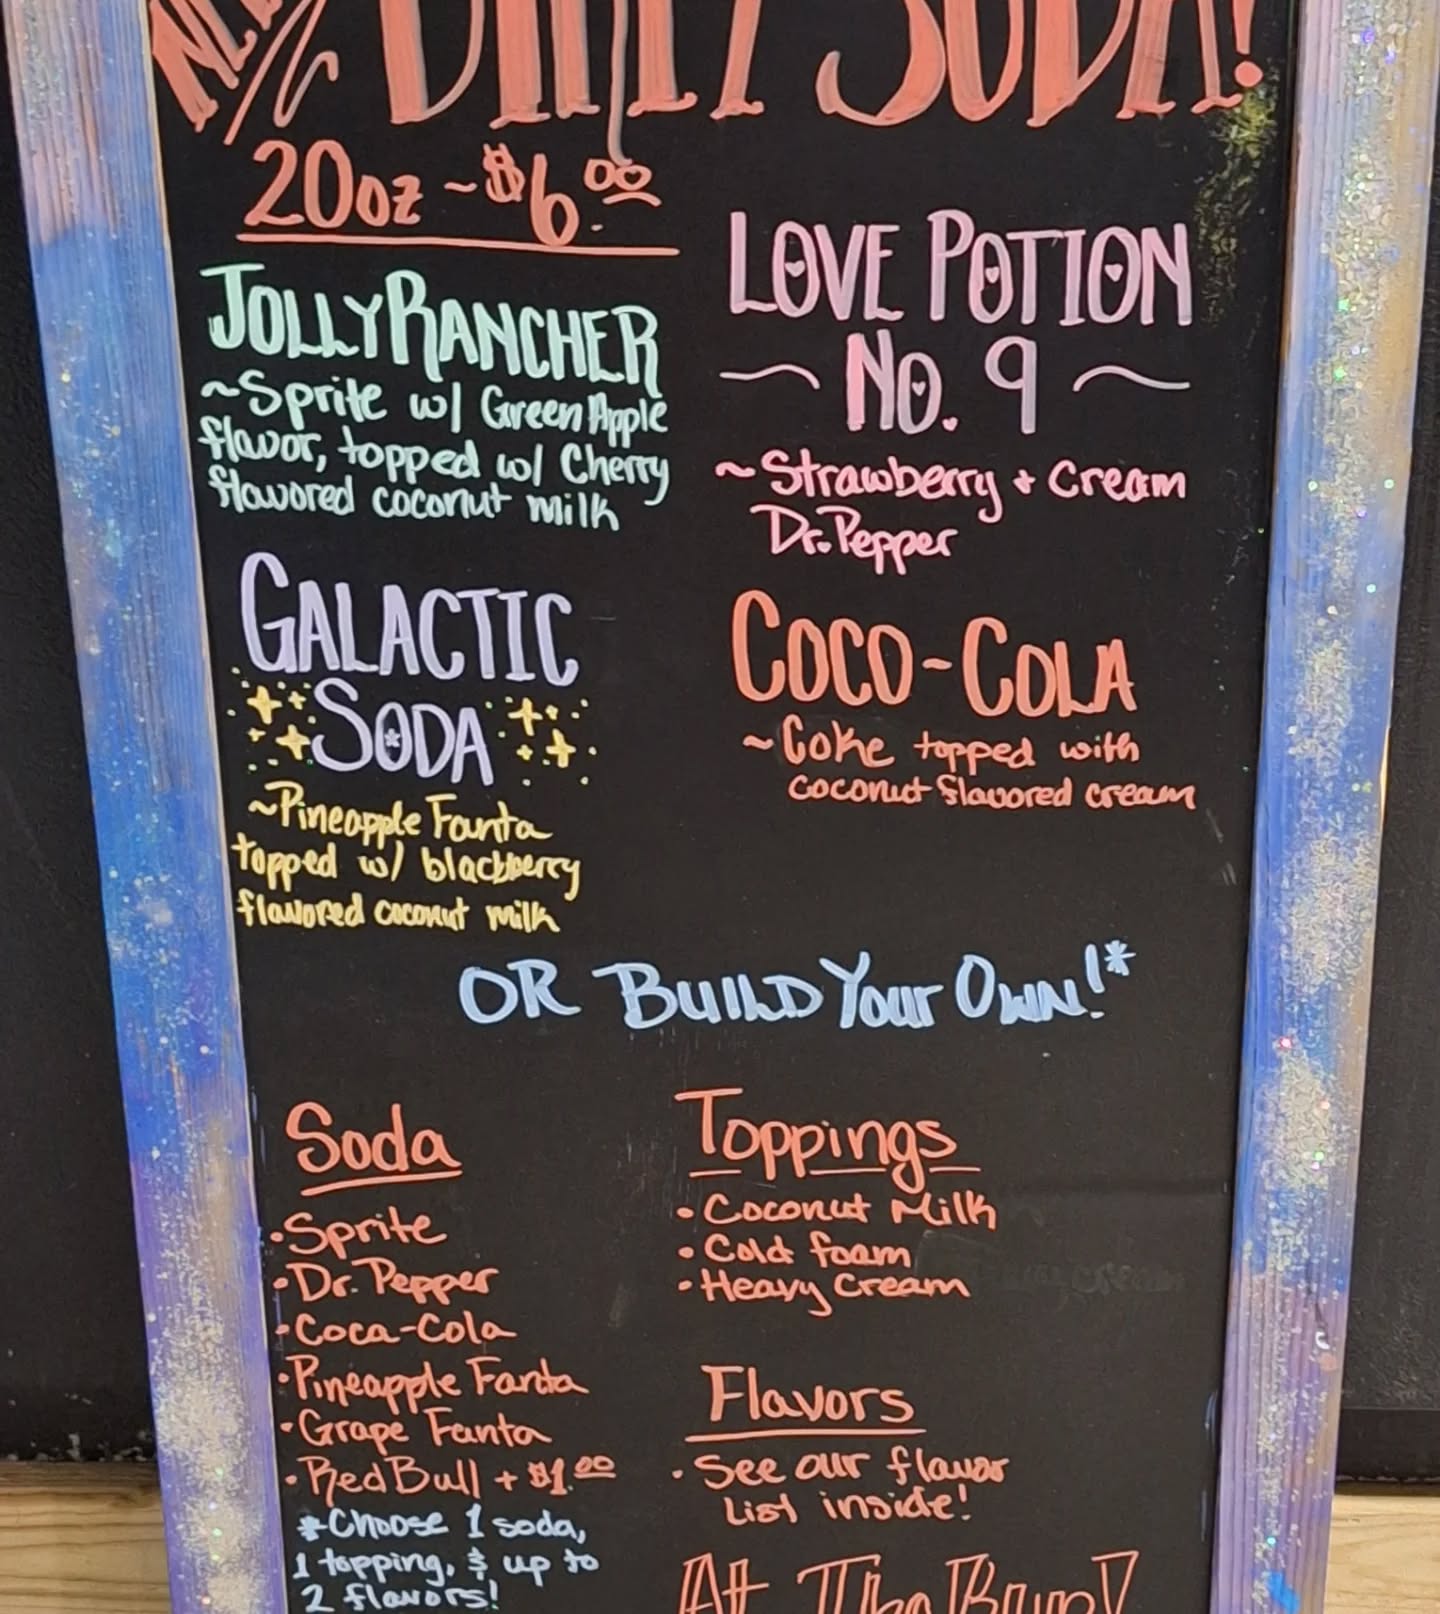 NEW DIRTY SODA!
20oz ~ $6.00
JOLLY RANCHER
~Sprite w/ Green Apple
flavor, topped w/ Cherry
flavored coconut milk
LOVE POTION
~ No. 9 ~
~ Strawberry + Cream
Dr. Pepper
GALACTIC
SODA
~Pineapple Fanta
topped w/ blackberry
flavored coconut milk
COCO-COLA
~ Coke topped with
coconut flavored cream
OR BUILD YOUR OWN!*
Soda
• Sprite
• Dr. Pepper
• Coca-Cola
• Pineapple Fanta
• Grape Fanta
• Red Bull + $1.00
*Choose 1 soda,
1 topping, & up to
2 flavors!
Toppings
• Coconut Milk
• Cold foam
• Heavy Cream
Flavors
• See our flavor
List inside!
At The